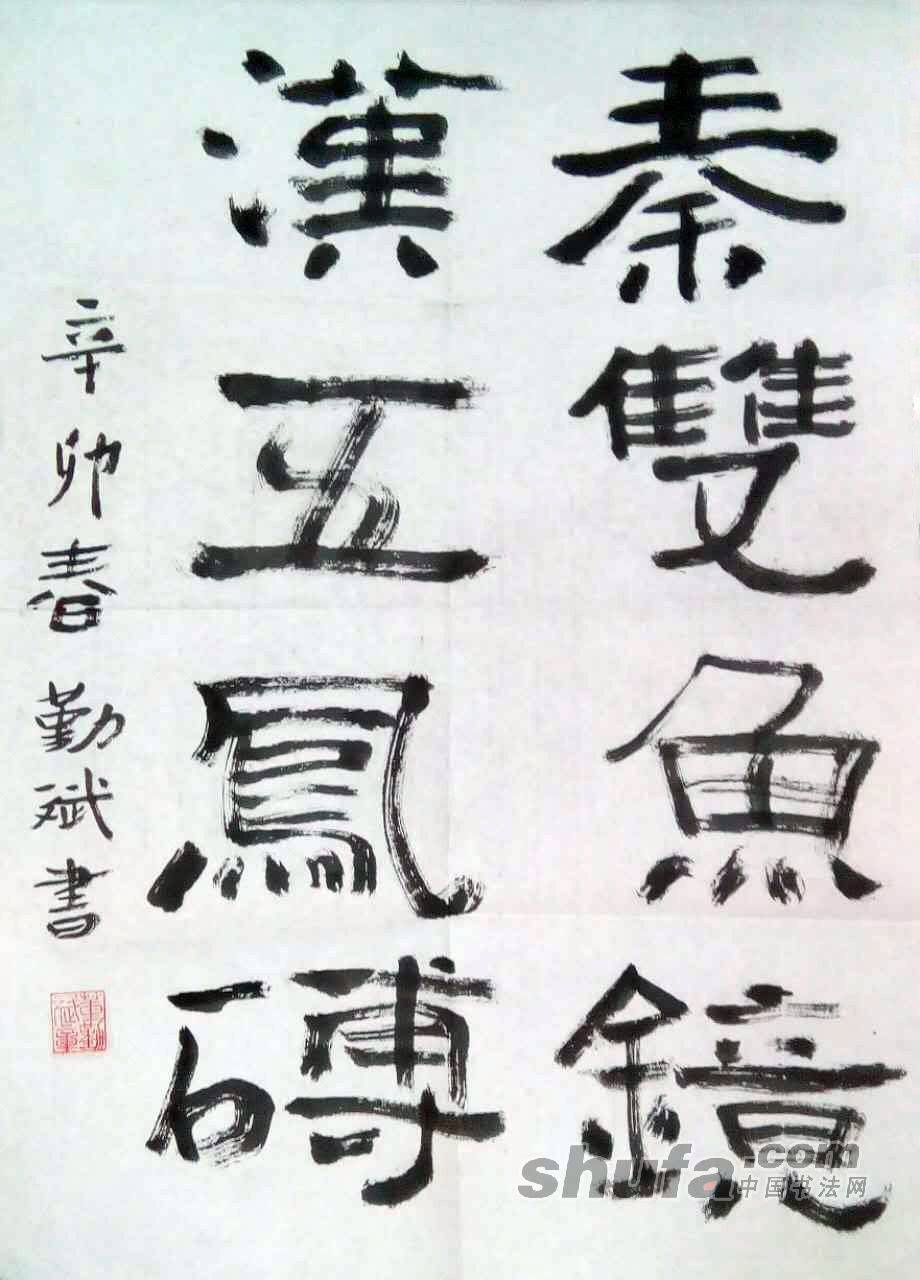 秦雙魚鏡
漢五鳳磚
辛卯春勤斌書
shufa.com
中国书法网